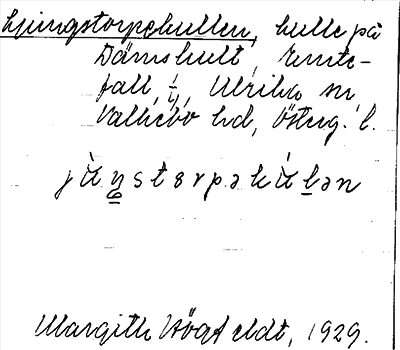 Ljungstorpekullen, kulle på
Dämshult, Ränte-
fall, 1/4, Ulrika sn
Valkebo hd, Österg. l.
jùŋstɵrpəkùlən
Margith Högfeldt, 1929.